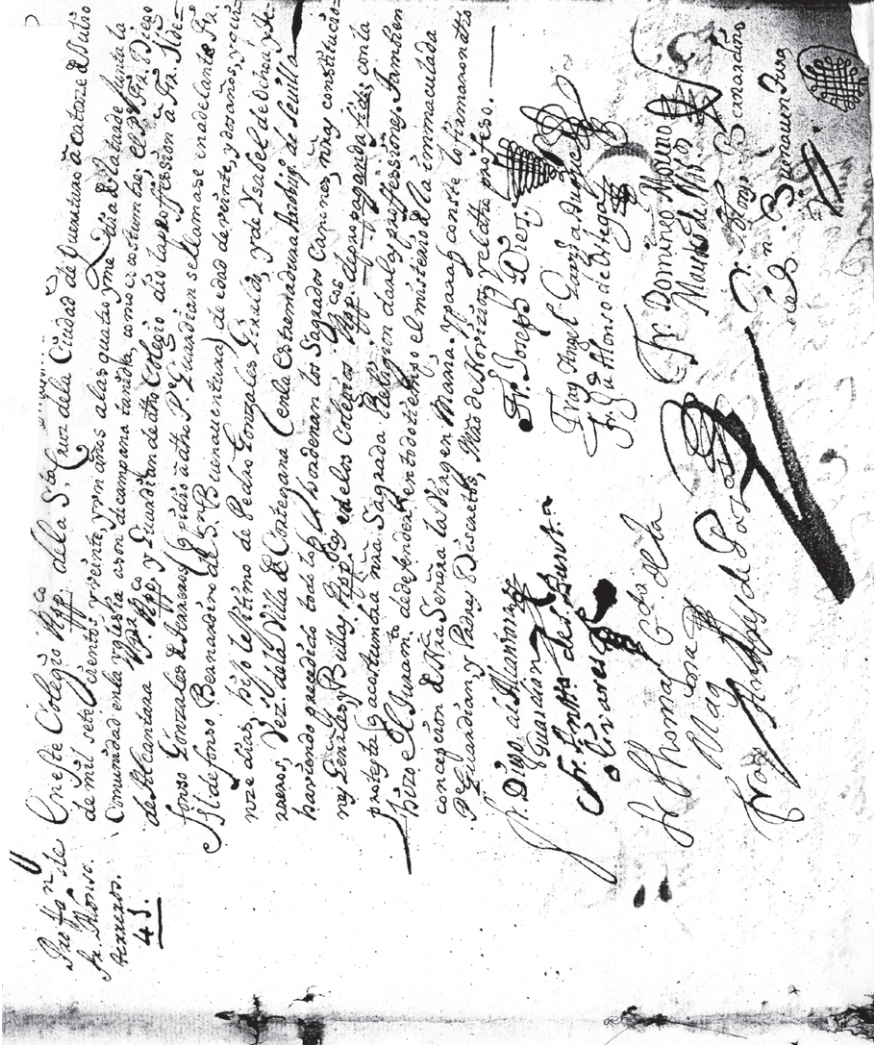 Profn de
Fr. Alonso
Terreros.
45.
En este Colegio App.co de la S.ta Cruz de la Ciudad de Queretaro à catorze de Julio
de mil setecientos, y veinte, y un años a las quatro y media de la tarde junta la
Comunidad en la yglesia a son de campana tanida, como es costumbre el P. Fr. Diego
de Alcantara Pred.r App.co y Guardian de dho Colegio dio la profession à Fr. Ilde-
fonso Gonzales de Terreros (q pidio à dho P.e Guardian se llamase en adelante Fr.
Ildefonso Bernardino de S. Buenaventura) de edad de veinte, y dos años, y quin-
ze dias, hijo lexitimo de Pedro Gonzales Guido, y de Ysabel de Ochoa y Te-
rreros, Vez.s de la Villa de Cortegana (en la Estremadura Arzbip.o de Sevilla
haviendo precedido todo lo q ordenan los Sagrados Canones, nras constitucio-
nes Gen.les y Bullas App.cas de los Colegios App.cos de propaganda fide, con la
protesta q acostumbra nra Sagrada Religion de las professiones. Tambien
hizo el Juram.to de defender en todo tiempo el misterio de la immaculada
concepcion de Nra Señora la Virgen Maria. Y para q conste lo firmaron dho
P.e Guardian, y Padres Discretos, Mro de Novizios, y el dho professo.
Fr. Diego de Alcantara
Guardian
Fr. Joseph Diez
Fr. Antt.o de S. Buenv.a
olivares
Fray Angel Garcia Duque
Fr. Ju Alonso de Ortega
Fr. Thomas
Fr. Domingo Moreno
Maestro de Nov.s
Fray Andres de Pazos
Fr. Alfonso Bernardino
de S.n Buenaventura